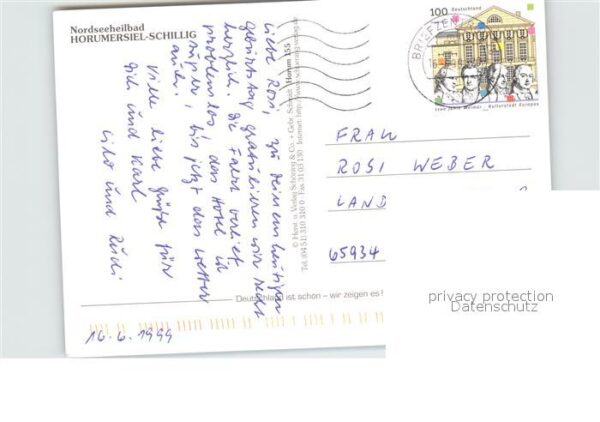 Nordseeheilbad
HORUMERSIEL-SCHILLIG
Liebe Rosi, zu deinem heutigen
Geburtstag gratulieren wir recht
herzlich. Die Fahrt verlief
problemlos, das Hotel ist
super, bis jetzt das Wetter
auch.
Viele liebe Grüße für
dich und Karl
Lilo und Rudi
16.6.1999
© Horst u. Verlag Schöning & Co. + Gebr. Schmidt Horum 155
Tel. (04 51) 310 310 0 · Fax 31 03 130
Deutschland ist schön – wir zeigen es!
100
Deutschland
1100 Jahre Weimar
Kulturstadt Europas
BRIEFZEN
FRAU
ROSI WEBER
LAND
65934
privacy protection
Datenschutz